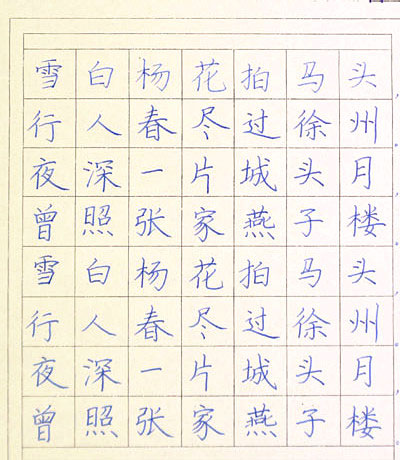 雪白杨花拍马头，
行人春尽过徐州。
夜深一片城头月，
曾照张家燕子楼。
雪白杨花拍马头，
行人春尽过徐州。
夜深一片城头月，
曾照张家燕子楼。